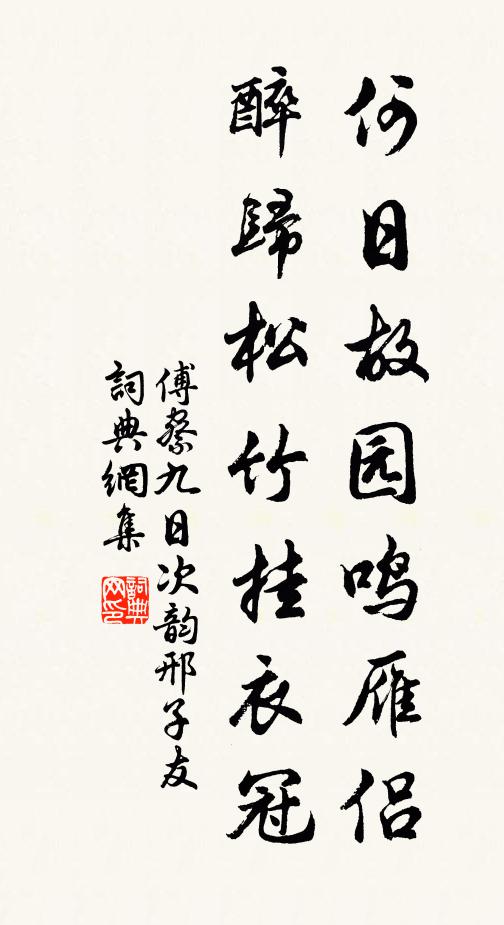 何日故园鸣雁侣
醉歸松竹挂衣冠
傅察九日次韵邢子友
詞典網集
詞典網印